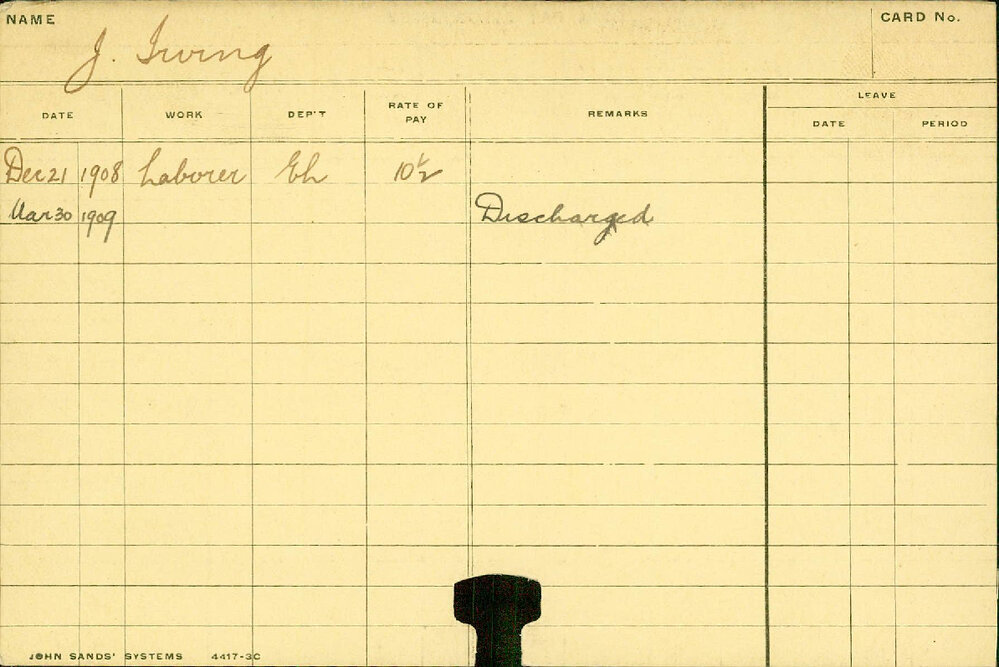 NAME
CARD No.
J. Irving
DATE WORK DEP'T RATE OF PAY REMARKS LEAVE
DATE PERIOD
Dec 21 1908 Laborer Eh 10½
Mar 30 1909 Discharged
JOHN SANDS' SYSTEMS 4417-3C